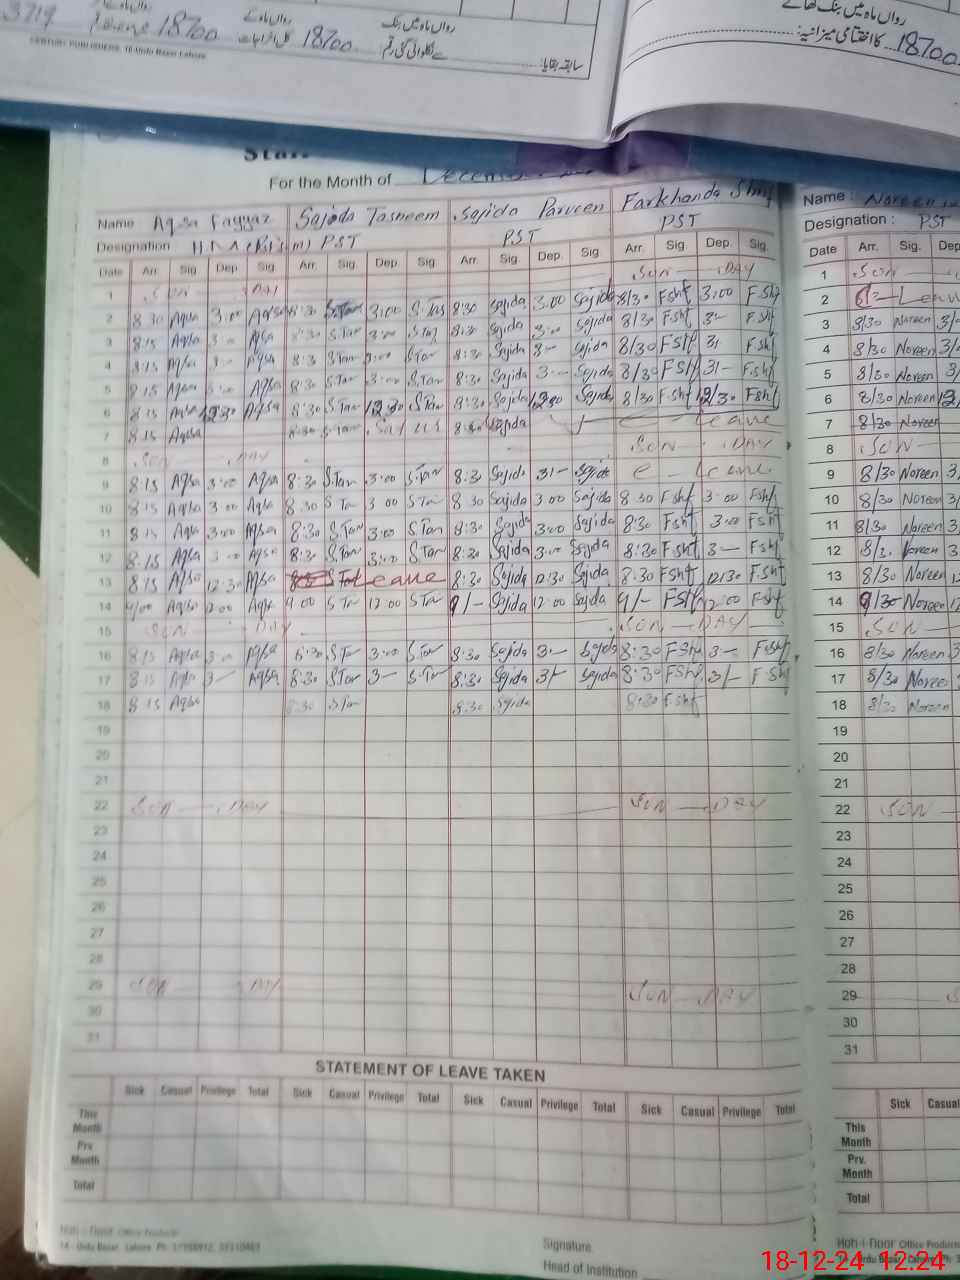 3719 18700 18700
رواں ماہ میں بنک
رواں ماہ میں بنک کھاتے
کا اختتامی میزانیہ: 18700
CENTURY PUBLISHERS 16-Urdu Bazar Lahore
For the Month of December
Name Aqsa Fayyaz Sajida Tasneem Sajida Parveen Farkhanda Name: Noreen
Designation PST PST PST Designation: PST
Date Arr. Sig. Dep. Sig. Arr. Sig. Dep. Sig. Arr. Sig. Dep. Sig. Arr. Sig. Dep. Sig. Date Arr. Sig.
1 SUN DAY SUN DAY 1 SUN
2 8:30 Aqsa 3:00 Aqsa 8:30 S.Tan 3:00 S.Tas 8:30 Sajida 3:00 Sajida 8/30 Fsht 3:00 F.Sht 2 Leave
3 8:15 Aqsa 3:00 Aqsa 8:30 S.Tan 3:00 S.Tan 8:30 Sajida 3:00 Sajida 8/30 Fsht 3- F.Sht 3 8/30 Noreen
4 8:15 Aqsa 3:00 Aqsa 8:30 S.Tan 3:00 S.Tan 8:30 Sajida 3- Sajida 8/30 FSht 3/ Fsht 4 8/30 Noreen
5 8:15 Aqsa 3:00 Aqsa 8:30 S.Tan 3:00 S.Tan 8:30 Sajida 3- Sajida 8/30 FSht 3/- F.sht 5 8/30 Noreen
6 8:15 Aqsa 12:30 Aqsa 8:30 S.Tan 12:30 S.Tan 8:30 Sajida 12:30 Sajida 8/30 F.sht 12/30 Fsht 6 8/30 Noreen
7 8:15 Aqsa 8:30 S.Tan 8:30 Sajida Leave 7 8/30 Noreen
8 SUN DAY SUN DAY 8 SUN
9 8:15 Aqsa 3:00 Aqsa 8:30 S.Tan 3:00 S.Tan 8:30 Sajida 3/- Sajida Leave 9 8/30 Noreen
10 8:15 Aqsa 3:00 Aqsa 8:30 S.Tan 3:00 S.Tan 8:30 Sajida 3:00 Sajida 8:30 Fsht 3:00 Fsht 10 8/30 Noreen
11 8:15 Aqsa 3:00 Aqsa 8:30 S.Tan 3:00 S.Tan 8:30 Sajida 3:00 Sajida 8:30 Fsht 3:00 FSht 11 8/30 Noreen
12 8:15 Aqsa 3:00 Aqsa 8:30 S.Tan 3:00 S.Tan 8:30 Sajida 3:00 Sajida 8:30 F.Sht 3- F.Sht 12 Noreen
13 8:15 Aqsa 12:30 Aqsa Leave 8:30 Sajida 12:30 Sajida 8:30 F.Sht 12:30 F.Sht 13 8/30 Noreen
14 9/00 Aqsa 12:00 Aqsa 9:00 S.Tan 12:00 S.Tan 9/- Sajida 12:00 Sajida 9/- FSht 12:00 Fsht 14 9/30 Noreen
15 SUN DAY SUN DAY 15 SUN
16 8:15 Aqsa 3:00 Aqsa 8:30 S.Tan 3:00 S.Tan 8:30 Sajida 3:- Sajida 8:30 FSht 3:- F.Sht 16 8/30 Noreen
17 8:15 Aqsa 3- Aqsa 8:30 S.Tan 3- S.Tan 8:30 Sajida 3/- Sajida 8:30 FSht 3/- F.Sht 17 8/30 Noreen
18 8:15 Aqsa 8:30 S.Tan 8:30 Sajida 8:30 F.Sht 18 8/30 Noreen
19 19
20 20
21 21
22 SUN DAY SUN DAY 22 SUN
23 23
24 24
25 25
26 26
27 27
28 28
29 SUN DAY SUN DAY 29
30 30
31 31
STATEMENT OF LEAVE TAKEN
Sick Casual Privilege Total Sick Casual Privilege Total Sick Casual Privilege Total Sick Casual Privilege Total Sick Casual
This Month This Month
Prv. Month Prv. Month
Total Total
Office Products Office Products
14 - Urdu Bazar, Lahore Ph:
Signature
Head of Institution
18-12-24 12:24